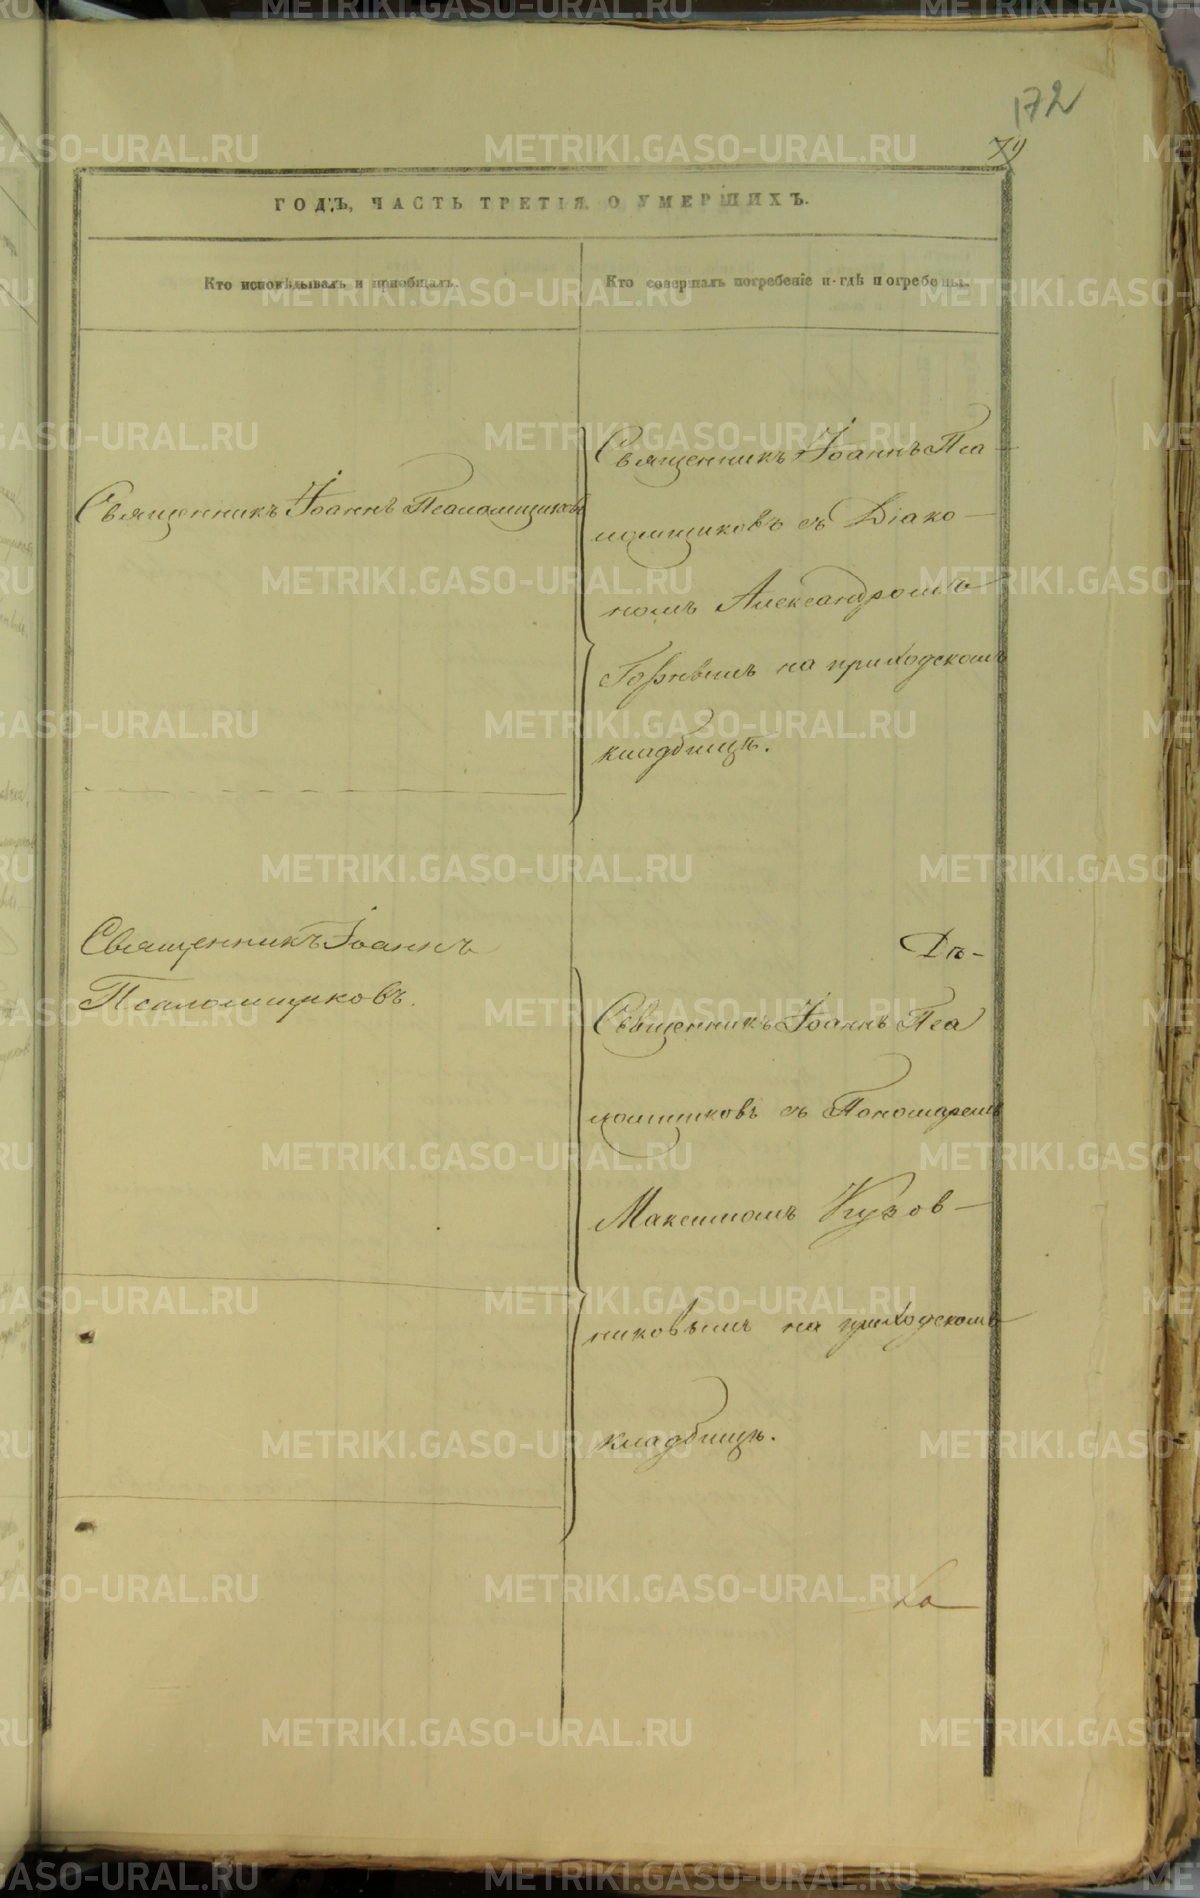 172
79
ГОДЪ, ЧАСТЬ ТРЕТІЯ О УМЕРШИХЪ.
Кто исповѣдывалъ и пріобщалъ.
Кто совершалъ погребеніе и гдѣ погребены.
Священникъ Іоаннъ Псаломщиковъ
Священникъ Іоаннъ Пса-
ломщиковъ съ Діако-
номъ Александромъ
на приходскомъ
кладбищѣ.
Священникъ Іоаннъ
Псаломщиковъ.
Дѣ-
Священникъ Іоаннъ Пса
ломщиковъ съ Пономаремъ
Максимомъ Кузов-
никовымъ на приходскомъ
кладбищѣ.
METRIKI.GASO-URAL.RU